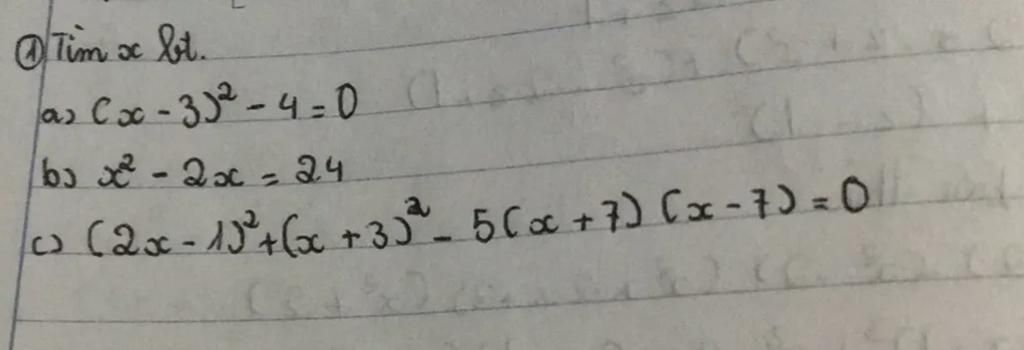 ① Tìm x bt.
a) (x - 3)² - 4 = 0
b) x² - 2x = 24
c) (2x - 1)² + (x + 3)² - 5(x + 7)(x - 7) = 0